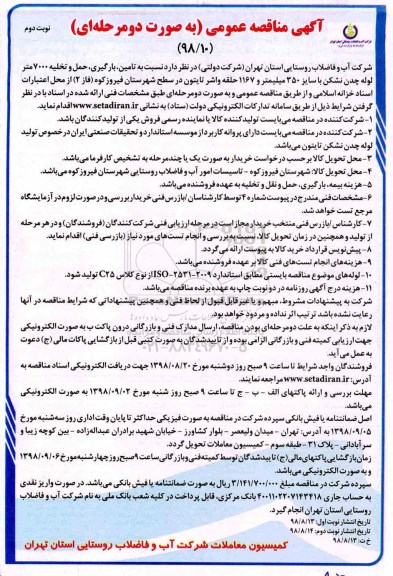 آگهی مناقصه عمومی (به صورت دومرحله‌ای)
نوبت دوم
(۹۸/۱۰)
شرکت آب و فاضلاب روستایی استان تهران (شرکت دولتی) در نظر دارد نسبت به تامین، بارگیری، حمل و تخلیه ۷۰۰۰ متر
لوله چدن نشکن با سایز ۳۵۰ میلیمتر و ۱۱۶۷ حلقه واشر تایتون در سطح شهرستان فیروزکوه (فاز ۲) از محل اعتبارات
اسناد خزانه اسلامی و از طریق مناقصه عمومی و به صورت دومرحله‌ای طبق مشخصات فنی ارائه شده در اسناد با در نظر
گرفتن شرایط ذیل از طریق سامانه تدارکات الکترونیکی دولت (ستاد) به نشانی www.setadiran.ir اقدام نماید.
۱- شرکت‌کننده در مناقصه می‌بایست تولیدکننده کالا یا نماینده رسمی فروش یکی از تولیدکنندگان باشد.
۲- شرکت‌کننده در مناقصه می‌بایست دارای پروانه کاربرد از موسسه استاندارد و تحقیقات صنعتی ایران در خصوص تولید
لوله چدن نشکن تایتون می‌باشد.
۳- محل تحویل کالا برحسب درخواست خریدار به صورت یک یا چند مرحله به تشخیص کارفرما می‌باشد.
۴- محل تحویل کالا: شهرستان فیروزکوه - تاسیسات امور آب و فاضلاب روستایی شهرستان فیروزکوه می‌باشد.
۵- هزینه بیمه، بارگیری، حمل و نقل و تخلیه به عهده فروشنده می‌باشد.
۶- مشخصات فنی مندرج در پیوست شماره ۴ توسط کارشناسان/بازرس فنی خریدار بررسی و در صورت لزوم در آزمایشگاه
مرجع تست خواهد شد.
۷- کارشناس/بازرس فنی منتخب خریدار مجاز است در مرحله ارزیابی فنی شرکت‌کنندگان (فروشندگان) و در هر مرحله
از تولید و همچنین در زمان تحویل کالا، نسبت به بررسی و انجام تست‌های مورد نیاز (بازرسی فنی) اقدام نماید.
۸- پیش‌نویس قرارداد خرید کالا به پیوست ارائه می‌گردد.
۹- هزینه‌های انجام تست‌های فنی کالا بر عهده فروشنده می‌باشد.
۱۰- لوله‌های موضوع مناقصه بایستی مطابق استاندارد ISO-۲۵۳۱-۲۰۰۹ از نوع کلاس C۲۵ تولید شود.
۱۱- هزینه درج آگهی روزنامه در دو نوبت چاپ به عهده برنده مناقصه می‌باشد.
شرکت به پیشنهادات مشروط، مبهم و یا غیر قابل قبول از لحاظ فنی و همچنین پیشنهاداتی که شرایط مناقصه در آنها
رعایت نشده باشد ترتیب اثر نداده و مردود خواهد بود.
لازم به ذکر اینکه به علت دومرحله‌ای بودن مناقصه، ارسال مدارک فنی و بازرگانی درون پاکت ب به صورت الکترونیکی
جهت ارزیابی کمیته فنی و بازرگانی الزامی بوده و از تاییدشدگان به صورت کتبی قبل از بازگشایی پاکات مالی (ج) دعوت
به عمل می آید.
فروشندگان واجد شرایط تا ساعت ۹ صبح روز دوشنبه مورخ ۱۳۹۸/۰۸/۲۰ جهت دریافت الکترونیکی اسناد مناقصه به
آدرس: www.setadiran.ir مراجعه نمایند.
مهلت بررسی و ارائه پاکتهای الف - ب - ج تا ساعت ۹ صبح روز شنبه مورخ ۱۳۹۸/۰۹/۰۲ به صورت الکترونیکی
می‌باشد.
اصل ضمانتنامه یا فیش بانکی سپرده شرکت در مناقصه به صورت فیزیکی حداکثر تا پایان وقت اداری روز سه‌شنبه مورخ
۱۳۹۸/۰۹/۰۵ به آدرس: تهران - میدان ولیعصر - بلوار کشاورز - خیابان شهید برادران عبداله‌زاده - بین کوچه زیبا و
سرآبادانی - پلاک ۳۱ - طبقه سوم - کمیسیون معاملات تحویل گردد.
زمان بازگشایی پاکتهای مالی (ج) تاییدشدگان توسط کمیته فنی و بازرگانی ساعت ۹ صبح روز چهارشنبه مورخ ۱۳۹۸/۰۹/۰۶
و به صورت الکترونیکی می‌باشد.
سپرده شرکت در مناقصه مبلغ ۳/۱۴۱/۷۰۰/۰۰۰ ریال به صورت ضمانتنامه یا فیش بانکی می‌باشد. در صورت واریز نقدی
به حساب جاری ۴۰۰۱۱۰۲۲۰۷۱۴۳۴۱۸ بانک مرکزی، قابل پرداخت در کلیه شعب بانک ملی به نام شرکت آب و فاضلاب
روستایی استان تهران انجام گیرد.
تاریخ انتشار نوبت اول: ۹۸/۸/۱۳
تاریخ انتشار نوبت دوم: ۹۸/۸/۱۴
خ ت: ۹۸/۸/۱۳
کمیسیون معاملات شرکت آب و فاضلاب روستایی استان تهران